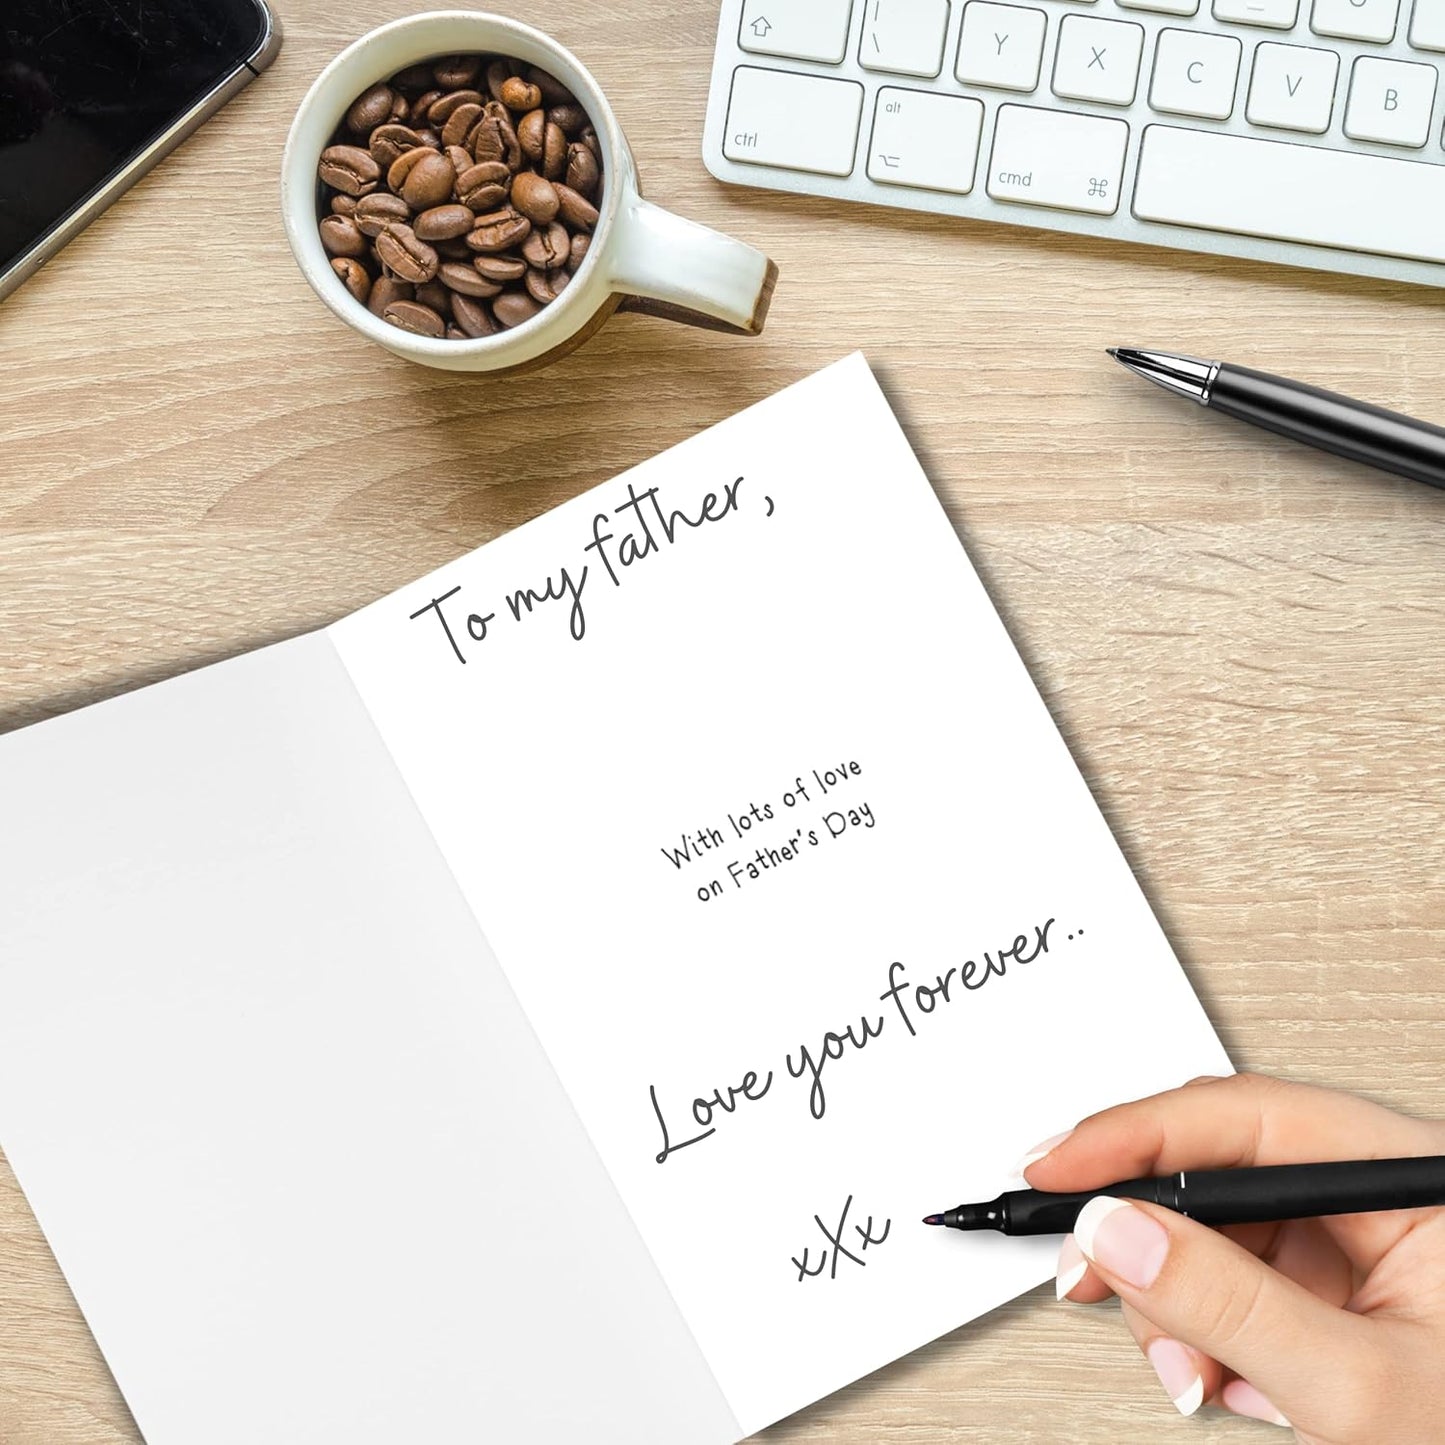 Y X C V B
ctrl alt cmd ⌘
To my father,
With lots of love
on Father's Day
Love you forever..
xXx